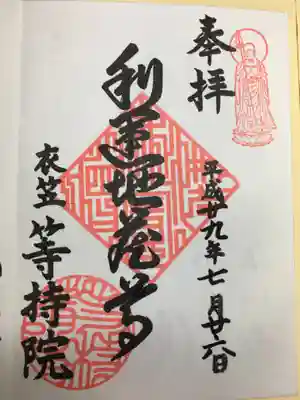 奉拝
平成廿九年七月廿六日
利運地蔵尊
衣笠等持院